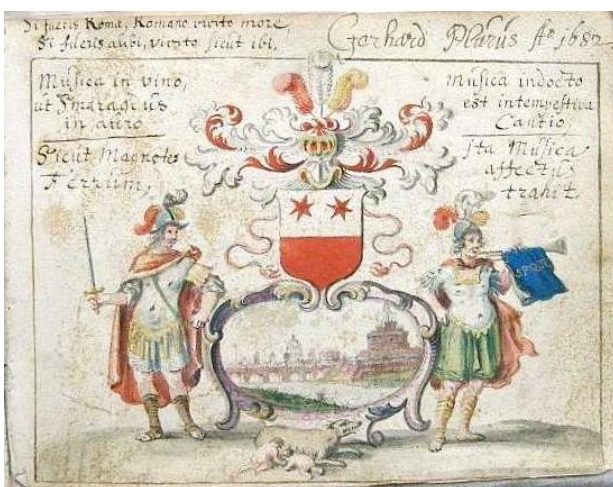 Si fueris Roma, Romano vivito more,
Si fueris alibi, vivito sicut ibi,
Gerhard A° 168
Musica in vino,
ut Smaragdus
in auro
Sicut Magnetes
Ferrum,
Musica indocto
est intempestiva
Cantio
Ita Musica
affectus
trahit.
SPQR